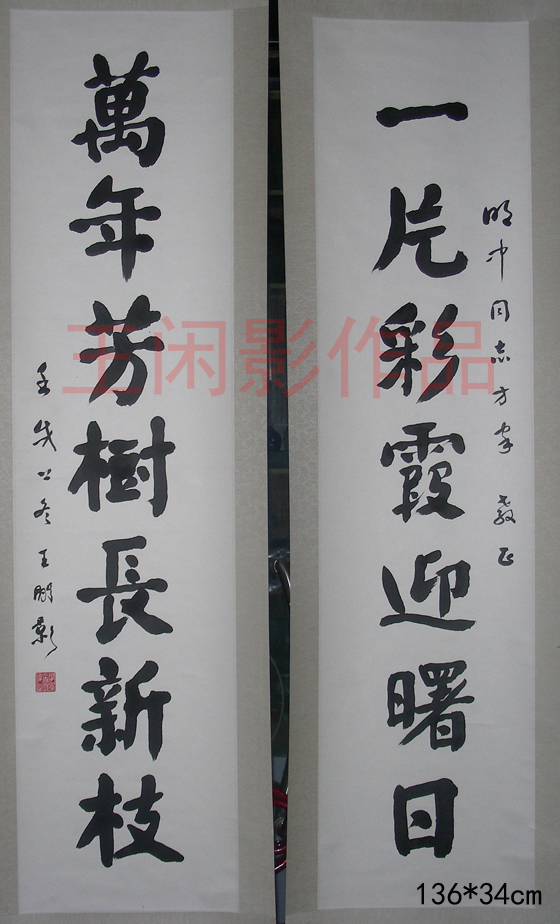 一片彩霞迎曙日
明冲同志方家 教正
萬年芳樹長新枝
壬戌之冬王閒影
王闲影作品
136*34cm